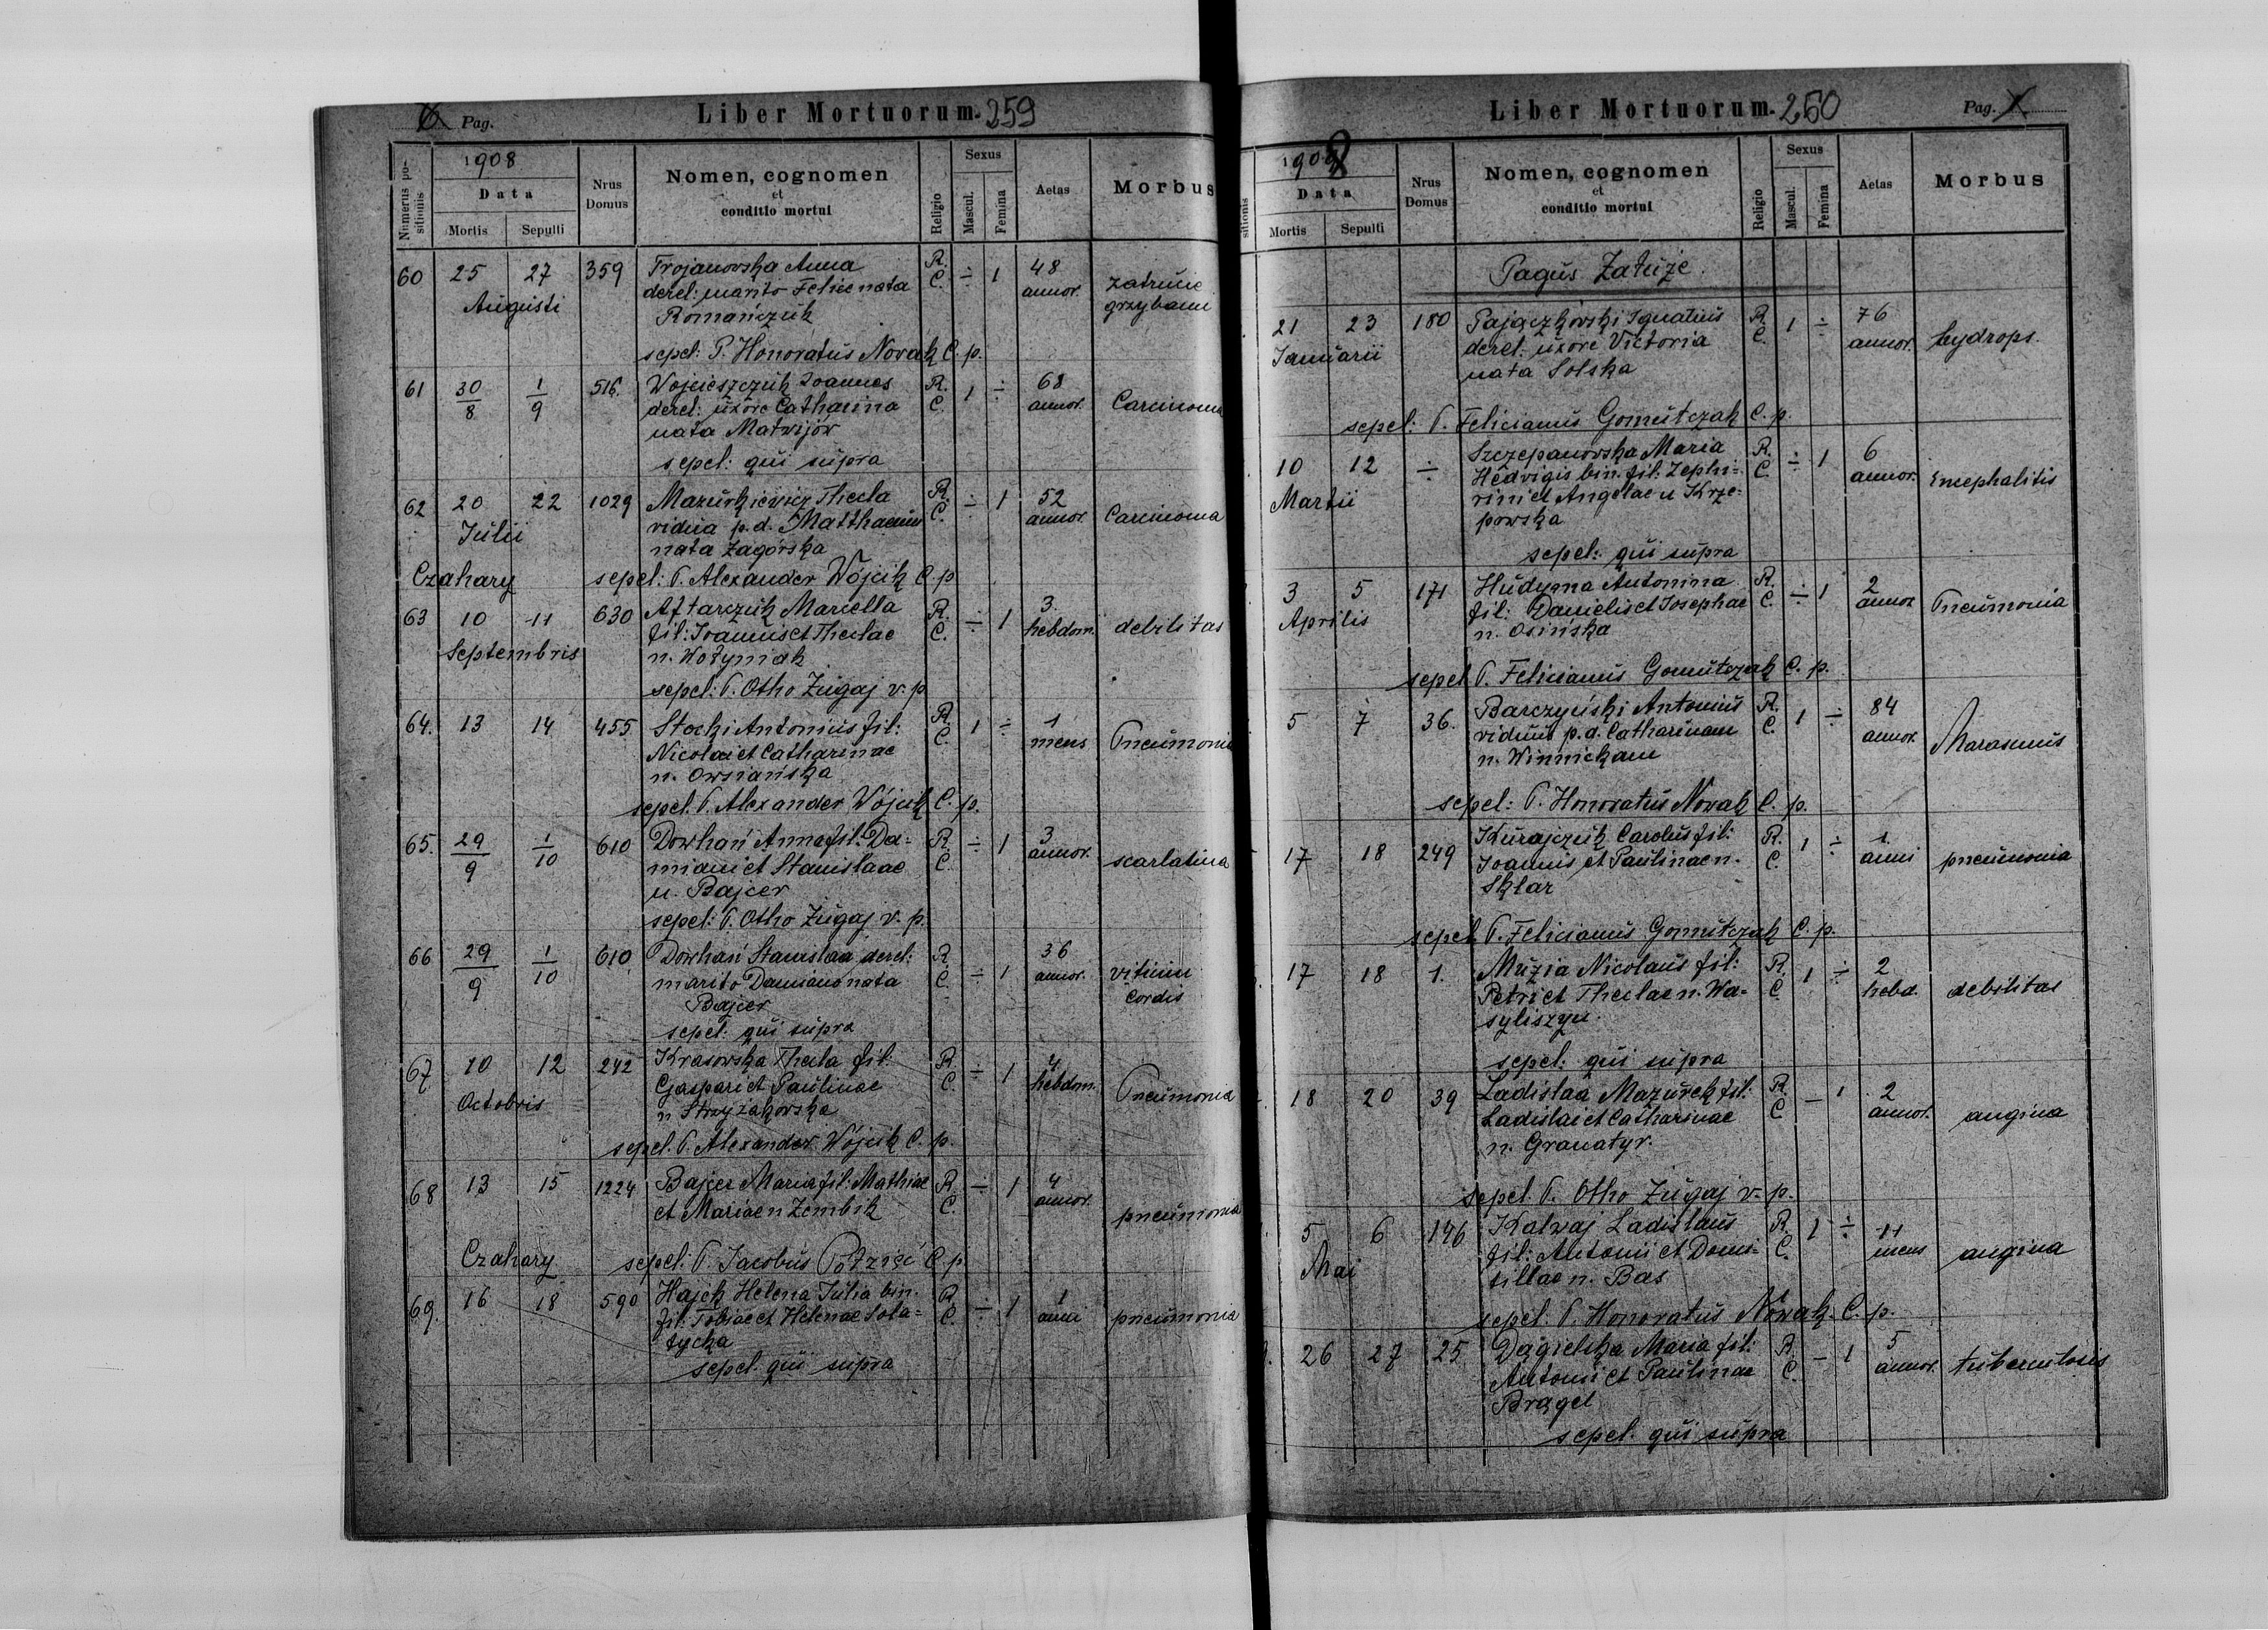 Pag.
Liber Mortuorum. 259
Numerus positionis
1908
Data
Mortis
Sepulti
Nrus Domus
Nomen, cognomen
et
conditio mortui
Religio
Sexus
Mascul.
Femina
Aetas
Morbus
60 25 27 359 Trojanowska Anna R. ÷ 1 48 zatrucie
Augusti derel: marito Felice nata C. annor. grzybami
Romańczuk
sepel: P. Honoratus Novak C. p.
61 30/8 1/9 516. Wojcieszczuk Joannes R. 1 ÷ 68
derel: uxore Catharina C. annor. Carcinoma
nata Matwijów
sepel: qui supra
62 20 22 1029 Mazurkiewicz Thecla R. ÷ 1 52
Julii vidua p.d. Matthaeum C. annor. Carcinoma
nata Zagórska
Czahary sepel: P. Alexander Wójcik C. p
63 10 11 630 Aftarczuk Mariella R. ÷ 1 3.
fil: Joannis et Theclae C. hebdom. debilitas
Septembris n. Wołyniak
sepel: P. Otho Zugaj v. p
64. 13 14 455 Stocki Antonius fil: R. 1 ÷ 1
Nicolai et Catharinae C. mens Pneumonia
n. Owsiańska
sepel. P. Alexander Wójcik C. p.
65. 29/9 1/10 610 Dowhań Anna fil: Da= R. ÷ 1 3
miani et Stanislaae C. annor. scarlatina
n. Bajcer
sepel: P. Otho Zugaj v. p.
66 29/9 1/10 610 Dowhań Stanislaa derel: R. ÷ 1 36
marito Damiano nata C. annor. vitium
Bajcer cordis
sepel. qui supra
67 10 12 242 Krasowska Thecla fil: R. ÷ 1 4
Gaspari et Paulinae C. hebdom. Pneumonia
Octobris n Strzyżakowska
sepel. P. Alexander Wójcik C. p.
68 13 15 1224 Bajcer Maria fil: Mathiae R. ÷ 1 4
et Mariae n Zembik C. annor. pneumonia
Czahary sepel: P. Jacobus Półzięć C p.
69. 16 18 590 Hajek Helena Julia bin. R. ÷ 1 1
fil: Tobiae et Helenae Soła= C. anni pneumonia
tycka
sepel. qui supra
Liber Mortuorum. 260
Pag.
sitionis
1909
Data
Mortis
Sepulti
Nrus Domus
Nomen, cognomen
et
conditio mortui
Religio
Sexus
Mascul.
Femina
Aetas
Morbus
Pagus Załuże.
21 23 180 Pajączkowski Ignatius R. 1 ÷ 76
Januarii derel: uxore Victoria C. annor. hydrops.
nata Solska
sepel: P. Felicianus Gomułczak C. p.
10 12 ÷ Szczepanowska Maria R. ÷ 1 6
Martii Hedvigis bin. fil: Zephi= C. annor. Encephalitis
rini et Angelae n Krze=
powska
sepel: qui supra
3 5 171 Hudyma Antonina R. ÷ 1 2
Aprilis fil: Danielis et Josephae C. annor Pneumonia
n. Osińska
sepel P. Felicianus Gomułczak C. p.
5 7 36. Barczyński Antonius R. 1 ÷ 84
viduus p.d. Catharinam C. annor. Marasmus
n. Winnickam
sepel: P. Honoratus Novak C. p.
17 18 249 Kurajczuk Carolus fil: R. 1 ÷ 1.
Joannis et Paulinae n. C. anni pneumonia
Sklar
sepel. P. Felicianus Gomułczak C. p.
17 18 1. Muzia Nicolaus fil: R. 1 ÷ 2
Petri et Theclae n. Wa= C. hebd. debilitas
syliszyn.
sepel: qui supra
18 20 39 Ladislaa Mazurek fil: R. – 1 2
Ladislai et Catharinae C annor. angina
n. Granatyr.
sepel. P. Otho Zugaj v. p.
5 6 176 Kalwaj Ladislaus R. 1 ÷ 11
Mai fil: Antonii et Domi= C. mens angina
tillae n. Bas
sepel. P. Honoratus Nowak. C. p.
26 27 25 Dągielska Maria fil: R. – 1 5
Antonii et Paulinae C. annor. tuberculosis
Brągel
sepel. qui supra